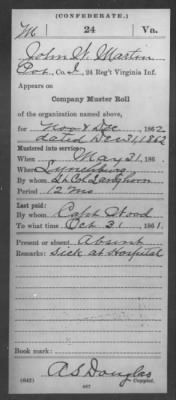 (CONFEDERATE.)
M 24 Va.
John W. Martin
Pvt, Co. I, 24 Reg't Virginia Inf.
Appears on
Company Muster Roll
of the organization named above,
for Nov & Dec, 1862
dated Dec 31, 1862
Mustered into service:
When May 31, 186
Where Lynchburg
By whom Lt Col Langhorn
Period 12 mo
Last paid:
By whom Capt Wood
To what time Oct 31, 1861
Present or absent Absent
Remarks: Sick at Hospital
Book mark:
(642) A S Douglas
Copyist.